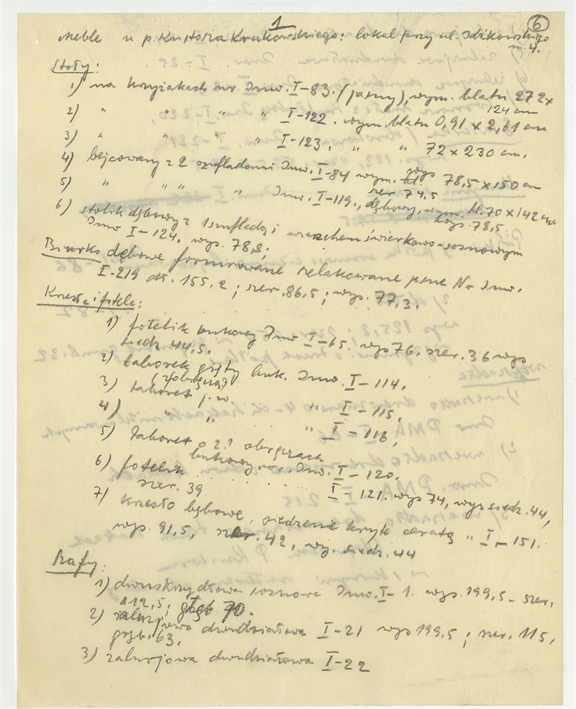 1
6
Meble u p. Kustosza Krukowskiego: lokal przy ul. Idzikowskiego m. 4.
Stoły:
1) na krzyżakach Inw. I-83. (jasny), wym. blatu 272 x 124 cm
2) " " " " I-122. wym. blatu 0,91 x 2,61 cm
3) " " " " I-123. " " 72 x 230 cm.
4) bejcowany z 2 szufladami Inw. I-84 wym. wys 78,5 x 150 cm szer. 74,5
5) " " " " Inw. I-119, dębowy, wym. bl. 70 x 142 cm wys. 78,5
6) stolik dębowy z 1 szufladą i wierzchem świerkowo-sosnowym
Inw I-124, wys. 78,8.
Biurko dębowe fornirowane Nr Inw.
I-219 dł. 155,2; szer. 86,5; wys. 77,3.
Krzesła i fotele:
1) fotelik bukowy Inw I-65, wys 76, szer. 36 wys
siedz. 44,5.
2) taboret gięty buk. Inw. I-114.
3) taboret j.w. " I-115,
4) " " " I-116,
5) taboret o 2 obręczach
bukowy Inw. I-120.
6) fotelik . . . . . I-121. wys 74, wys siedz. 44,
szer. 39
7) krzesło dębowe, siedzenie kryte ceratą " I-151.
wys. 91,5, szer. 42, wy. siedz. 44
Szafy:
1) dwuskrzydłowa sosnowa Inw. I-1. wys. 199,5 - szer.
112,5; głęb 70.
2) żaluzjowa dwudziałowa I-21 wys 199,5; szer. 115,
głęb. 63.
3) żaluzjowa dwudziałowa I-22